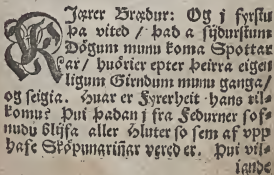 Kjærer Brædur: Og i fyrstu
þa vited / þad a sijdurstum
Dögum munu koma Spottar
ar / huörier epter þeirra eigen
ligum Girndum munu ganga /
og seigia. Huar er Fyrerheit hans til
komu? Þui þadan i fra Fedurner sof-
nudu blijfa aller Hluter so sem af upp
hafe Sköpunariñar vered er. Þui vil-
iande